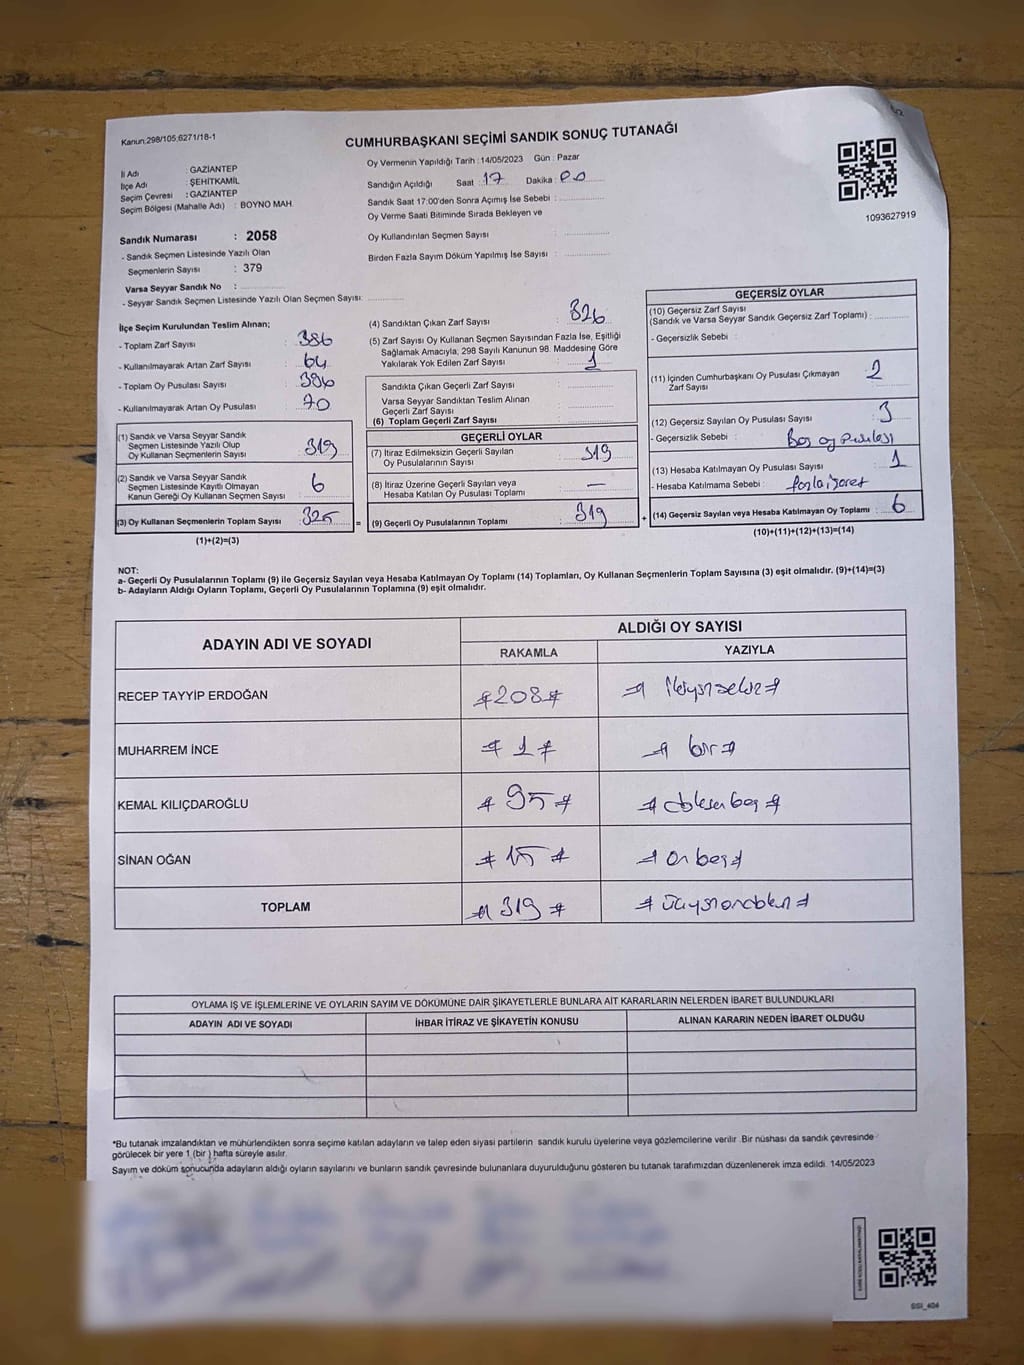 Kanun:298/105:6271/18-1
CUMHURBAŞKANI SEÇİMİ SANDIK SONUÇ TUTANAĞI
İl Adı : GAZİANTEP
İlçe Adı : ŞEHİTKAMİL
Seçim Çevresi : GAZİANTEP
Seçim Bölgesi (Mahalle Adı) : BOYNO MAH.
Oy Vermenin Yapıldığı Tarih : 14/05/2023 Gün : Pazar
Sandığın Açıldığı Saat : 17 Dakika : 00
Sandık Saat 17:00'den Sonra Açımış İse Sebebi :
Oy Verme Saati Bitiminde Sırada Bekleyen ve
Oy Kullandırılan Seçmen Sayısı :
Birden Fazla Sayım Döküm Yapılmış İse Sayısı :
1093627919
Sandık Numarası : 2058
- Sandık Seçmen Listesinde Yazılı Olan
Seçmenlerin Sayısı : 379
Varsa Seyyar Sandık No :
- Seyyar Sandık Seçmen Listesinde Yazılı Olan Seçmen Sayısı:
İlçe Seçim Kurulundan Teslim Alınan;
- Toplam Zarf Sayısı : 386
- Kullanılmayarak Artan Zarf Sayısı : 64
- Toplam Oy Pusulası Sayısı : 396
- Kullanılmayarak Artan Oy Pusulası : 70
(1) Sandık ve Varsa Seyyar Sandık
Seçmen Listesinde Yazılı Olup
Oy Kullanan Seçmenlerin Sayısı : 319
(2) Sandık ve Varsa Seyyar Sandık
Seçmen Listesinde Kayıtlı Olmayan
Kanun Gereği Oy Kullanan Seçmen Sayısı : 6
(3) Oy Kullanan Seçmenlerin Toplam Sayısı : 325 =
(1)+(2)=(3)
(4) Sandıktan Çıkan Zarf Sayısı : 326
(5) Zarf Sayısı Oy Kullanan Seçmen Sayısından Fazla İse, Eşitliği
Sağlamak Amacıyla; 298 Sayılı Kanunun 98. Maddesine Göre
Yakılarak Yok Edilen Zarf Sayısı : 1
Sandıkta Çıkan Geçerli Zarf Sayısı :
Varsa Seyyar Sandıktan Teslim Alınan
Geçerli Zarf Sayısı :
(6) Toplam Geçerli Zarf Sayısı :
GEÇERLİ OYLAR
(7) İtiraz Edilmeksizin Geçerli Sayılan
Oy Pusulalarının Sayısı : 319
(8) İtiraz Üzerine Geçerli Sayılan veya
Hesaba Katılan Oy Pusulası Toplamı : —
(9) Geçerli Oy Pusulalarının Toplamı : 319 +
GEÇERSİZ OYLAR
(10) Geçersiz Zarf Sayısı
(Sandık ve Varsa Seyyar Sandık Geçersiz Zarf Toplamı) :
- Geçersizlik Sebebi :
(11) İçinden Cumhurbaşkanı Oy Pusulası Çıkmayan
Zarf Sayısı : 2
(12) Geçersiz Sayılan Oy Pusulası Sayısı : 3
- Geçersizlik Sebebi : Boş oy pusulası
(13) Hesaba Katılmayan Oy Pusulası Sayısı : 1
- Hesaba Katılmama Sebebi : fazla işaret
(14) Geçersiz Sayılan veya Hesaba Katılmayan Oy Toplamı : 6
(10)+(11)+(12)+(13)=(14)
NOT:
a- Geçerli Oy Pusulalarının Toplamı (9) ile Geçersiz Sayılan veya Hesaba Katılmayan Oy Toplamı (14) Toplamları, Oy Kullanan Seçmenlerin Toplam Sayısına (3) eşit olmalıdır. (9)+(14)=(3)
b- Adayların Aldığı Oyların Toplamı, Geçerli Oy Pusulalarının Toplamına (9) eşit olmalıdır.
ADAYIN ADI VE SOYADI
ALDIĞI OY SAYISI
RAKAMLA YAZIYLA
RECEP TAYYİP ERDOĞAN #208# # ikiyüzsekiz #
MUHARREM İNCE # 1 # # bir #
KEMAL KILIÇDAROĞLU # 95 # # doksanbeş #
SİNAN OĞAN # 15 # # on beş #
TOPLAM # 319 # # üçyüzondokuz #
OYLAMA İŞ VE İŞLEMLERİNE VE OYLARIN SAYIM VE DÖKÜMÜNE DAİR ŞİKAYETLERLE BUNLARA AİT KARARLARIN NELERDEN İBARET BULUNDUKLARI
ADAYIN ADI VE SOYADI İHBAR İTİRAZ VE ŞİKAYETİN KONUSU ALINAN KARARIN NEDEN İBARET OLDUĞU
*Bu tutanak imzalandıktan ve mühürlendikten sonra seçime katılan adayların ve talep eden siyasi partilerin sandık kurulu üyelerine veya gözlemcilerine verilir. Bir nüshası da sandık çevresinde
görülecek bir yere 1 (bir) hafta süreyle asılır.
Sayım ve döküm sonucunda adayların aldığı oyların sayılarını ve bunların sandık çevresinde bulunanlara duyurulduğunu gösteren bu tutanak tarafımızdan düzenlenerek imza edildi. 14/05/2023
SSI_404